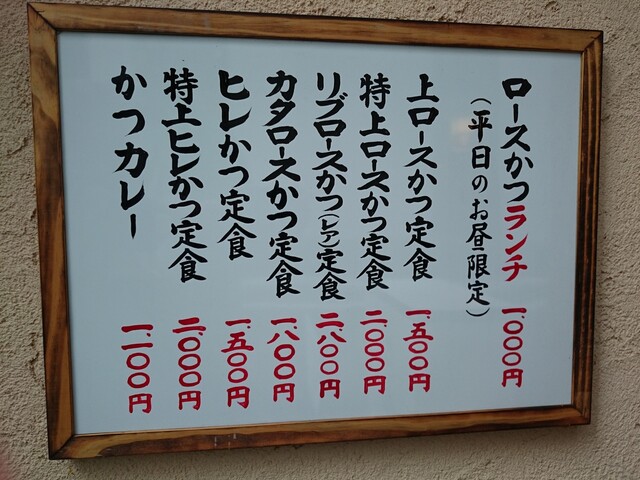 ロースかつランチ 一、〇〇〇円
(平日のお昼限定)
上ロースかつ定食 一、五〇〇円
特上ロースかつ定食 二、〇〇〇円
リブロースかつ(レア)定食 二、八〇〇円
カタロースかつ定食 一、八〇〇円
ヒレかつ定食 一、五〇〇円
特上ヒレかつ定食 二、〇〇〇円
かつカレー 一、二〇〇円